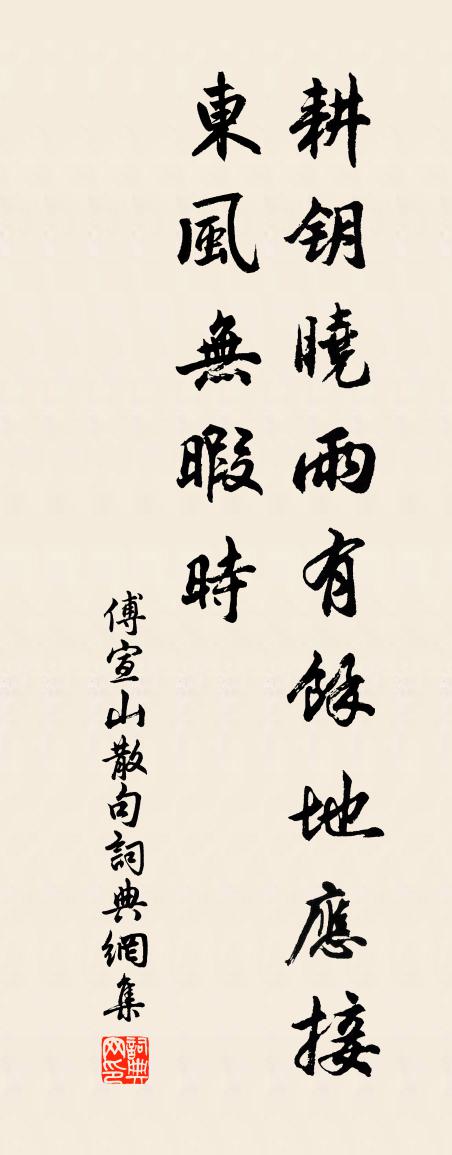 耕鈅曉雨有餘地應接
東風無暇時
傅宣山散句詞典網集
詞典网印